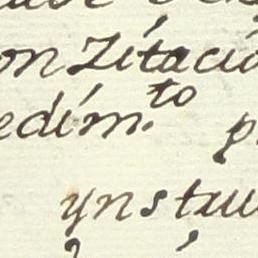 on Zítació
edím.to p
ynstau